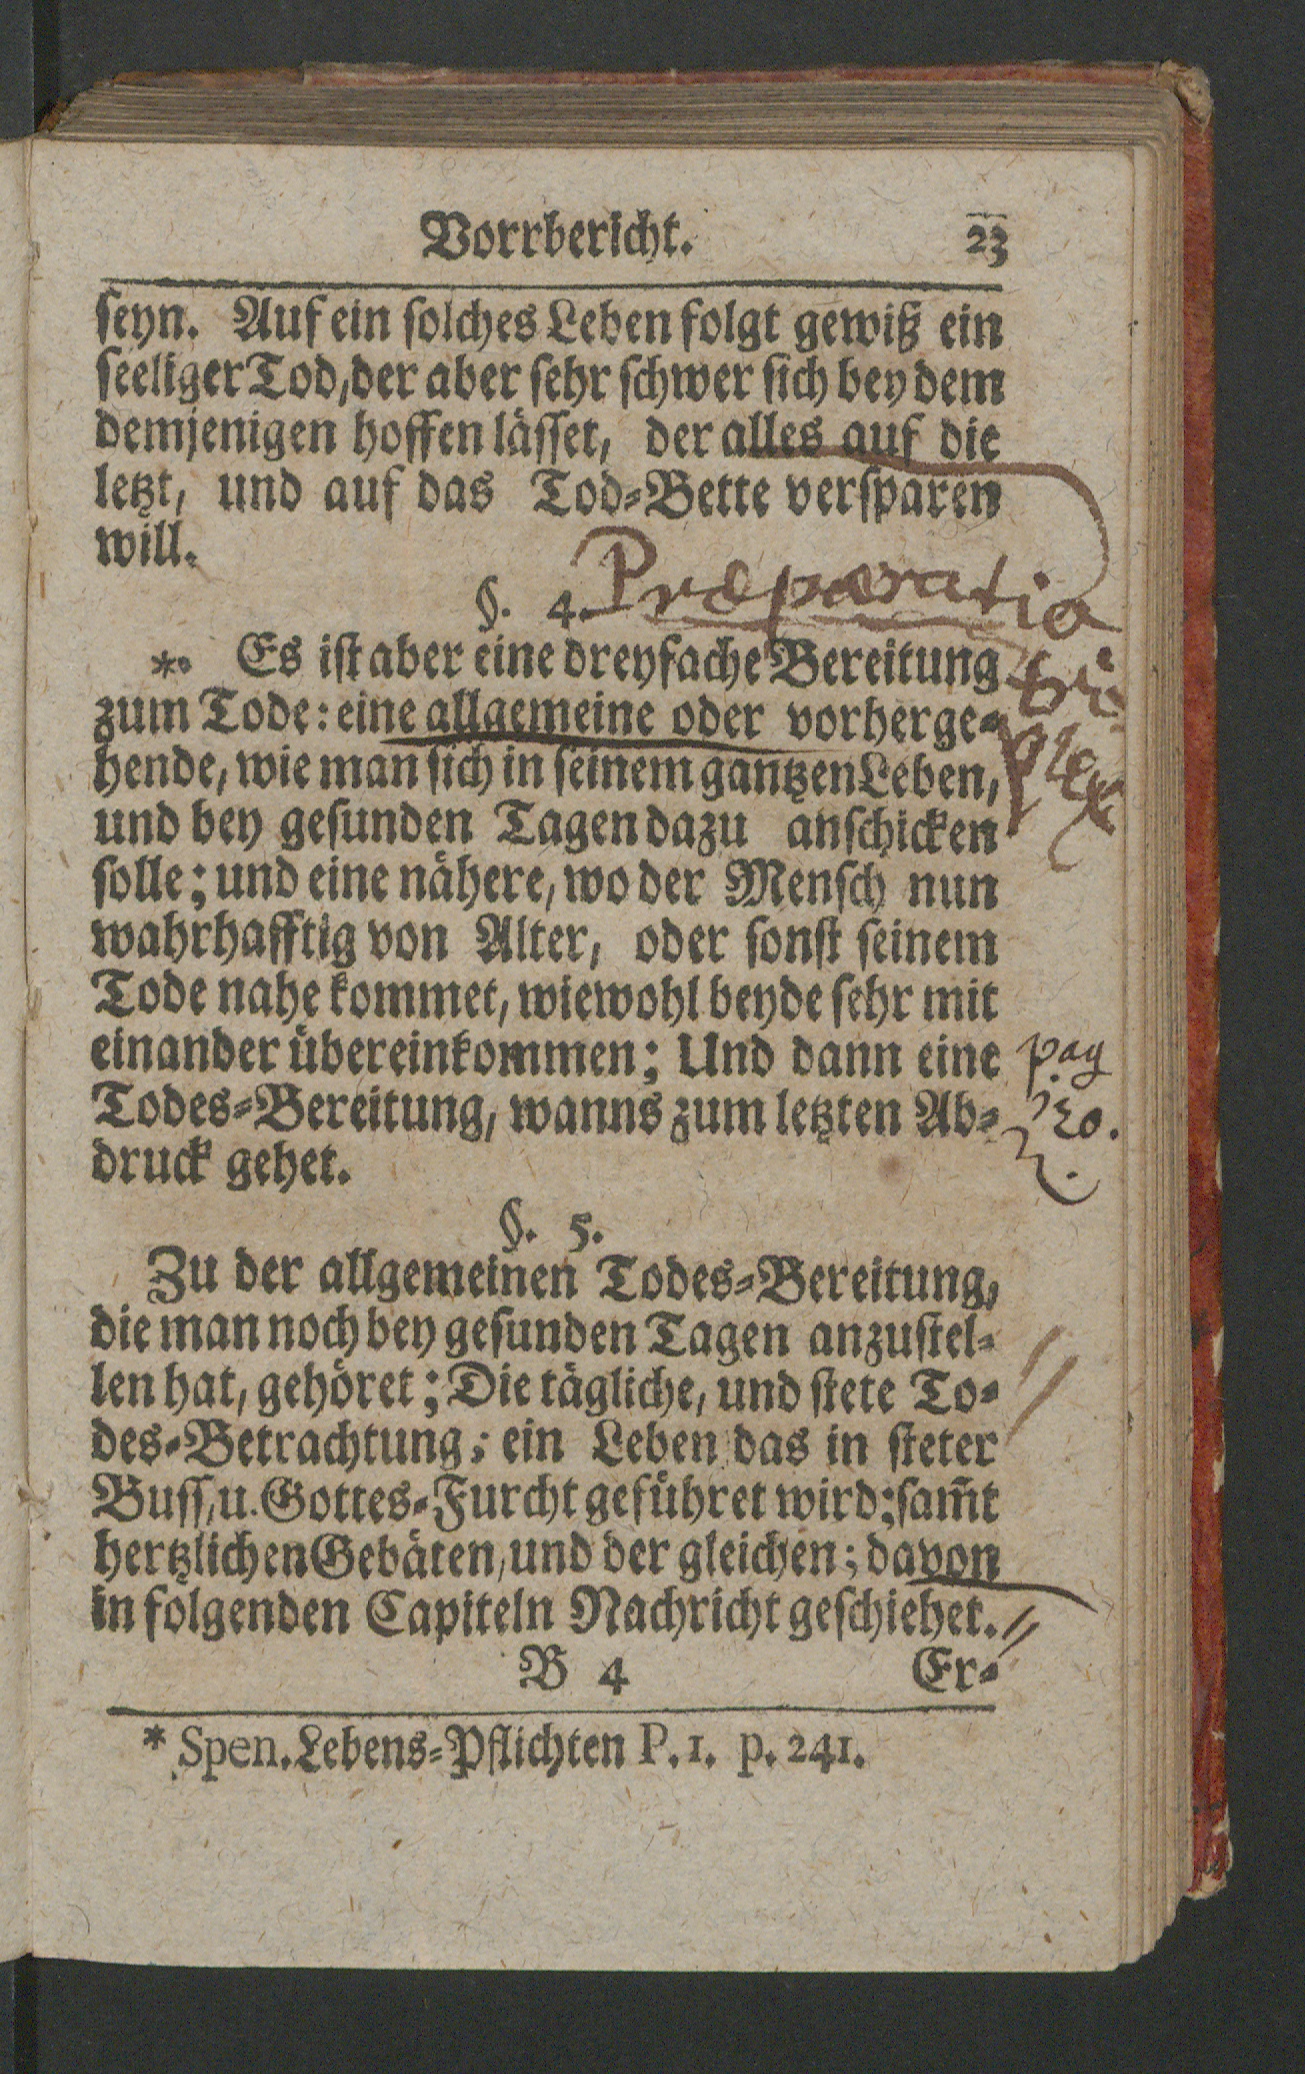 Vorrbericht. 23
seyn. Auf ein solches Leben folgt gewiß ein
seeliger Tod, der aber sehr schwer sich bey dem
demjenigen hoffen lässet, der alles auf die
letzt, und auf das Tod-Bette versparen
will.
§. 4. Præparatio
*. Es ist aber eine dreyfache Bereitung
tri
zum Tode: eine allgemeine oder vorherge-
plex
hende, wie man sich in seinem gantzen Leben,
und bey gesunden Tagen dazu anschicken
solle; und eine nähere, wo der Mensch nun
wahrhafftig von Alter, oder sonst seinem
Tode nahe kommet, wiewohl beyde sehr mit
einander übereinkommen; Und dann eine
pag
Todes-Bereitung, wanns zum letzten Ab-
druck gehet.
§. 5.
Zu der allgemeinen Todes-Bereitung,
die man noch bey gesunden Tagen anzustel-
len hat, gehöret; Die tägliche, und stete To-
des-Betrachtung; ein Leben das in steter
Buss, u. Gottes-Furcht geführet wird; sam̃t
hertzlichen Gebäten, und der gleichen; davon
in folgenden Capiteln Nachricht geschiehet.
B 4 Er-
* Spen. Lebens-Pflichten P. 1. p. 241.